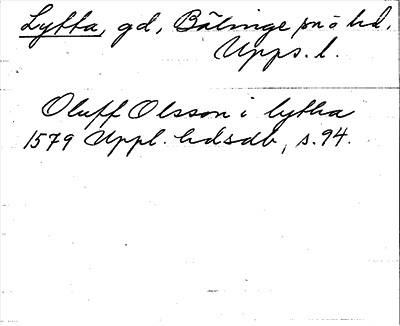 Lytta, gd, Bälinge sn o hd.
Upps. l.
Oluff Olsson i lytha
1579 Uppl. hdsdb, s. 94.